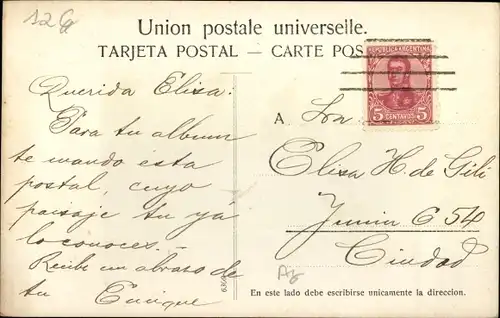 Union postale universelle.
TARJETA POSTAL — CARTE POS
REPUBLICA ARGENTINA
5 CENTAVOS 5
Querida Elisa:
Para tu album
te mando esta
postal, cuyo
paisaje tu ya
lo conoces. -
Recibe un abrazo de
tu Enrique
A Sra
Elisa H. de Gili
Junin 654
Ciudad
Arg
En este lado debe escribirse unicamente la direccion.